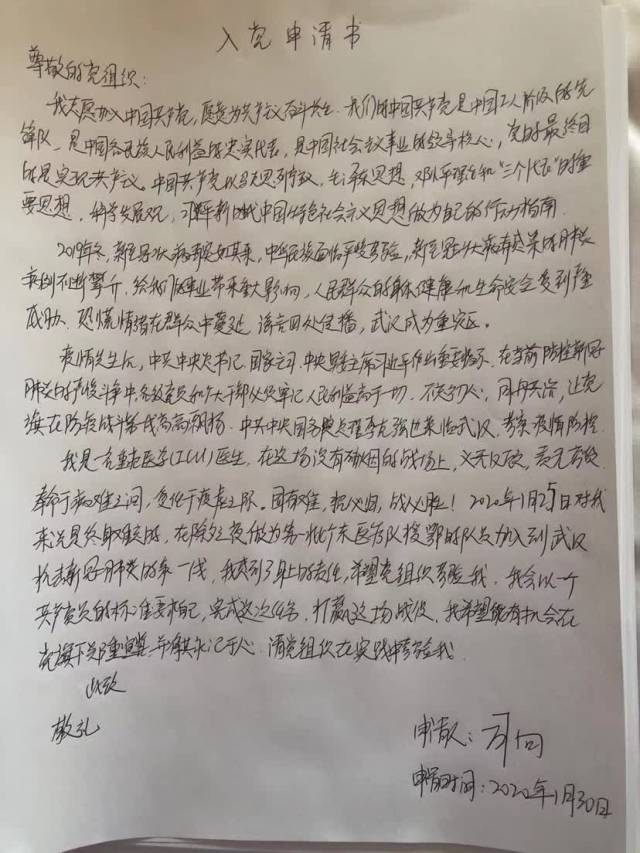 入党申请书
尊敬的党组织：
我志愿加入中国共产党，愿意为共产主义奋斗终生。我们的中国共产党是中国工人阶级的先
锋队，是中国各民族人民利益的忠实代表，是中国社会主义事业的领导核心，党的最终目
的是实现共产主义。中国共产党以马克思列宁主义，毛泽东思想，邓小平理论和"三个代表"的重
要思想，科学发展观，习近平新时代中国特色社会主义思想做为自己的行动指南。
2019年冬，新型冠状病毒突如其来，中华民族面临严峻考验，新型冠状病毒感染的肺炎
病例不断攀升，给我们的事业带来重大影响，人民群众的身体健康和生命安全受到严重
威胁。恐慌情绪在群众中蔓延，谣言四处传播，武汉成为重灾区。
疫情发生后，中共中央总书记国家主席中央军委主席习近平作出重要指示，在当前防控新冠
肺炎的严峻斗争中，各级党员和广大干部必须牢记人民利益高于一切，不忘初心，同舟共济，让党
旗在防疫战斗第一线高高飘扬。中共中央国务院总理李克强也来临武汉，考察疫情防控。
我是一名重症医学(ICU)医生，在这场没有硝烟的战场上，义无反顾，责无旁贷
奉命于病难之间，受任于疫虐之际。国有难，招必回，战必胜！2020年1月25日对我
来说是终身难忘的，在除夕之夜做为第一批广东医疗队援鄂的队员加入到武汉
抗击新冠肺炎的第一线，我感到了身上的责任，希望党组织考验我，我会以一个
共产党员的标准要求自己，完成这次任务，打赢这场战役。我希望能有机会在
党旗下郑重宣誓，并将其永记于心。请党组织在实践中考验我。
此致
敬礼
申请人：
申请时间：2020年1月30日